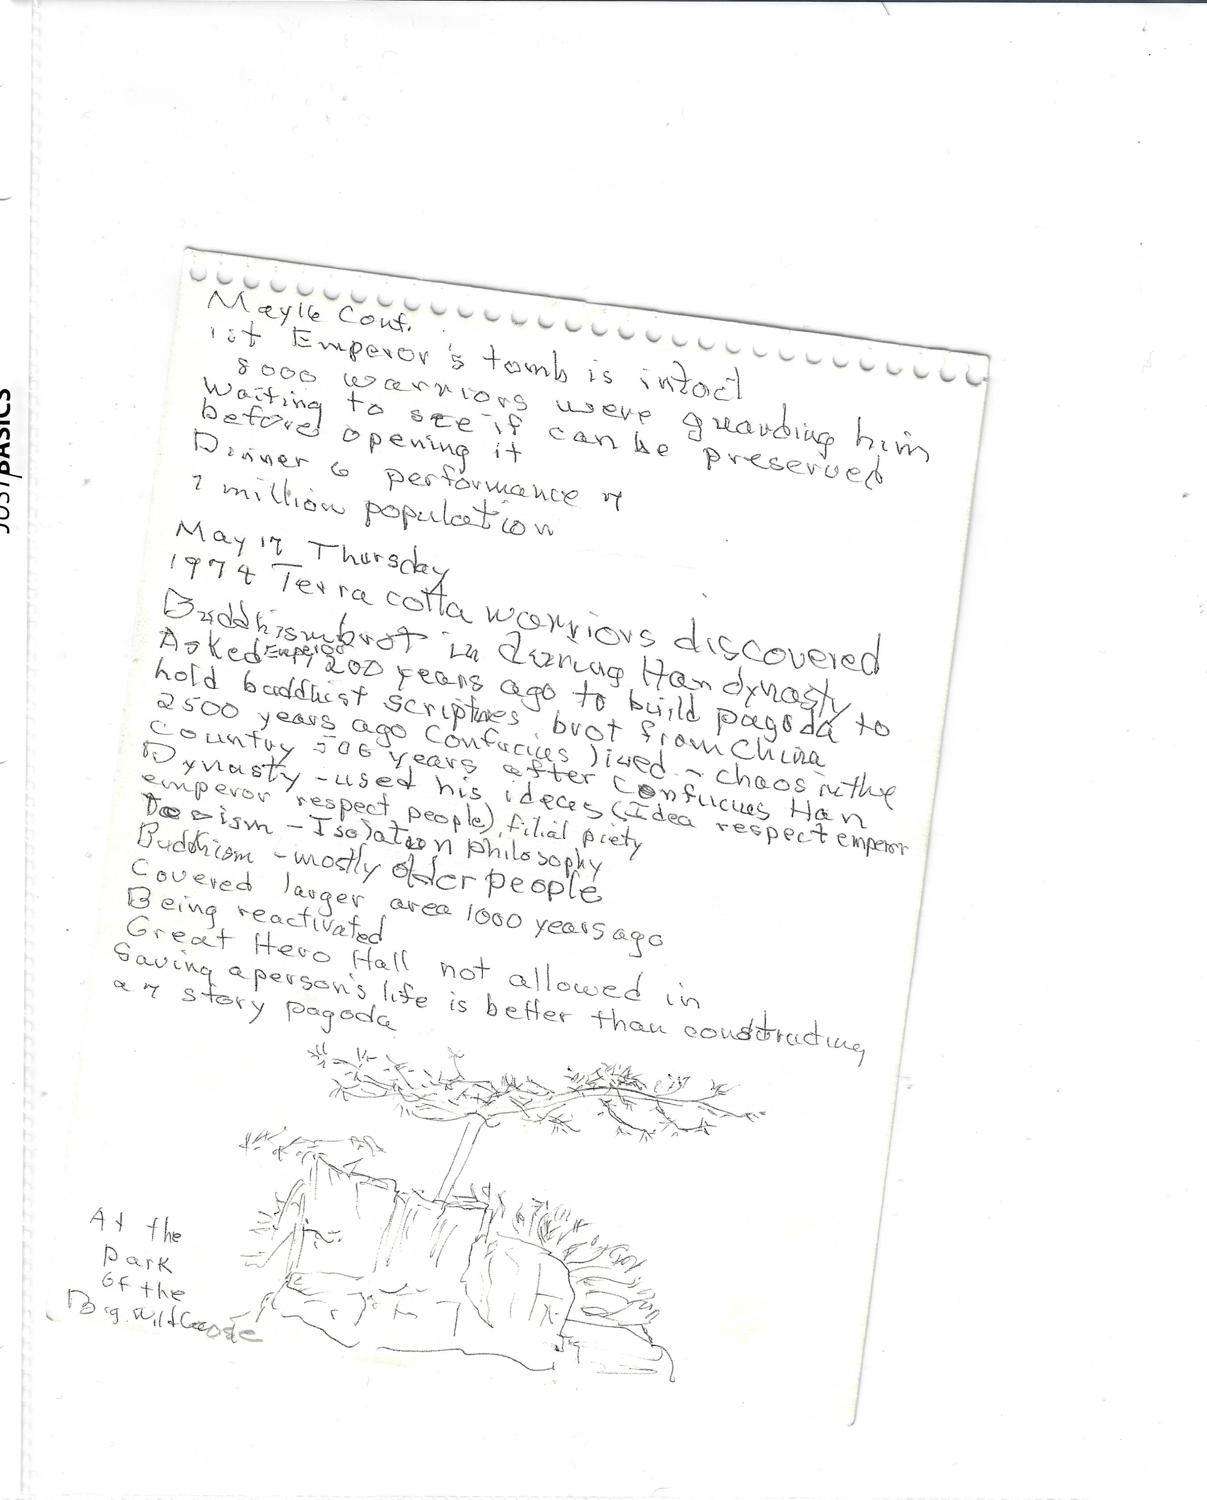 JUST BASICS
May 16 Cont.
1st Emperor's tomb is intact
8000 warriors were guarding him
Waiting to see if can be preserved
before opening it
Dinner & performance
7 million population
May 17 Thursday
1974 Terra cotta warriors discovered
Buddhism brot in during Han dynasty
Asked Emperor 1200 years ago to build pagoda to
hold buddhist scriptures brot from China
2500 years ago Confucius lived - chaos in the
Country 500 years after Confucius Han
Dynasty - used his ideas (Idea respect emperor
emperor respect people), filial piety
Taoism - Isolation philosophy
Buddhism - mostly older people
Covered larger area 1000 years ago
Being reactivated
Great Hero Hall not allowed in
Saving a person's life is better than constructing
a 7 story pagoda
At the
Park
Of the
Big Wild Goose